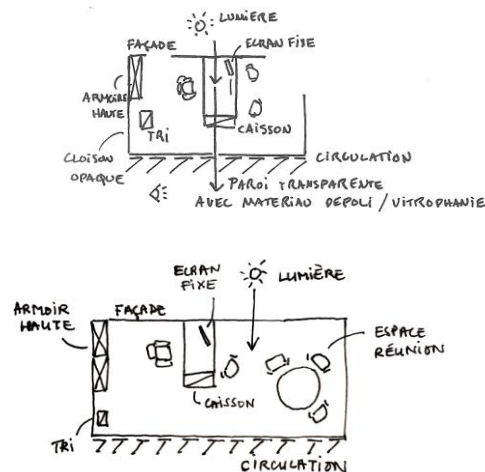 LUMIÈRE
FAÇADE
ECRAN FIXE
ARMOIRE
HAUTE
TRI
CAISSON
CLOISON
OPAQUE
CIRCULATION
PAROI TRANSPARENTE
AVEC MATERIAU DEPOLI / VITROPHANIE
ECRAN
FIXE
LUMIÈRE
ARMOIR
HAUTE
FAÇADE
ESPACE
RÉUNION
CAISSON
TRI
CIRCULATION